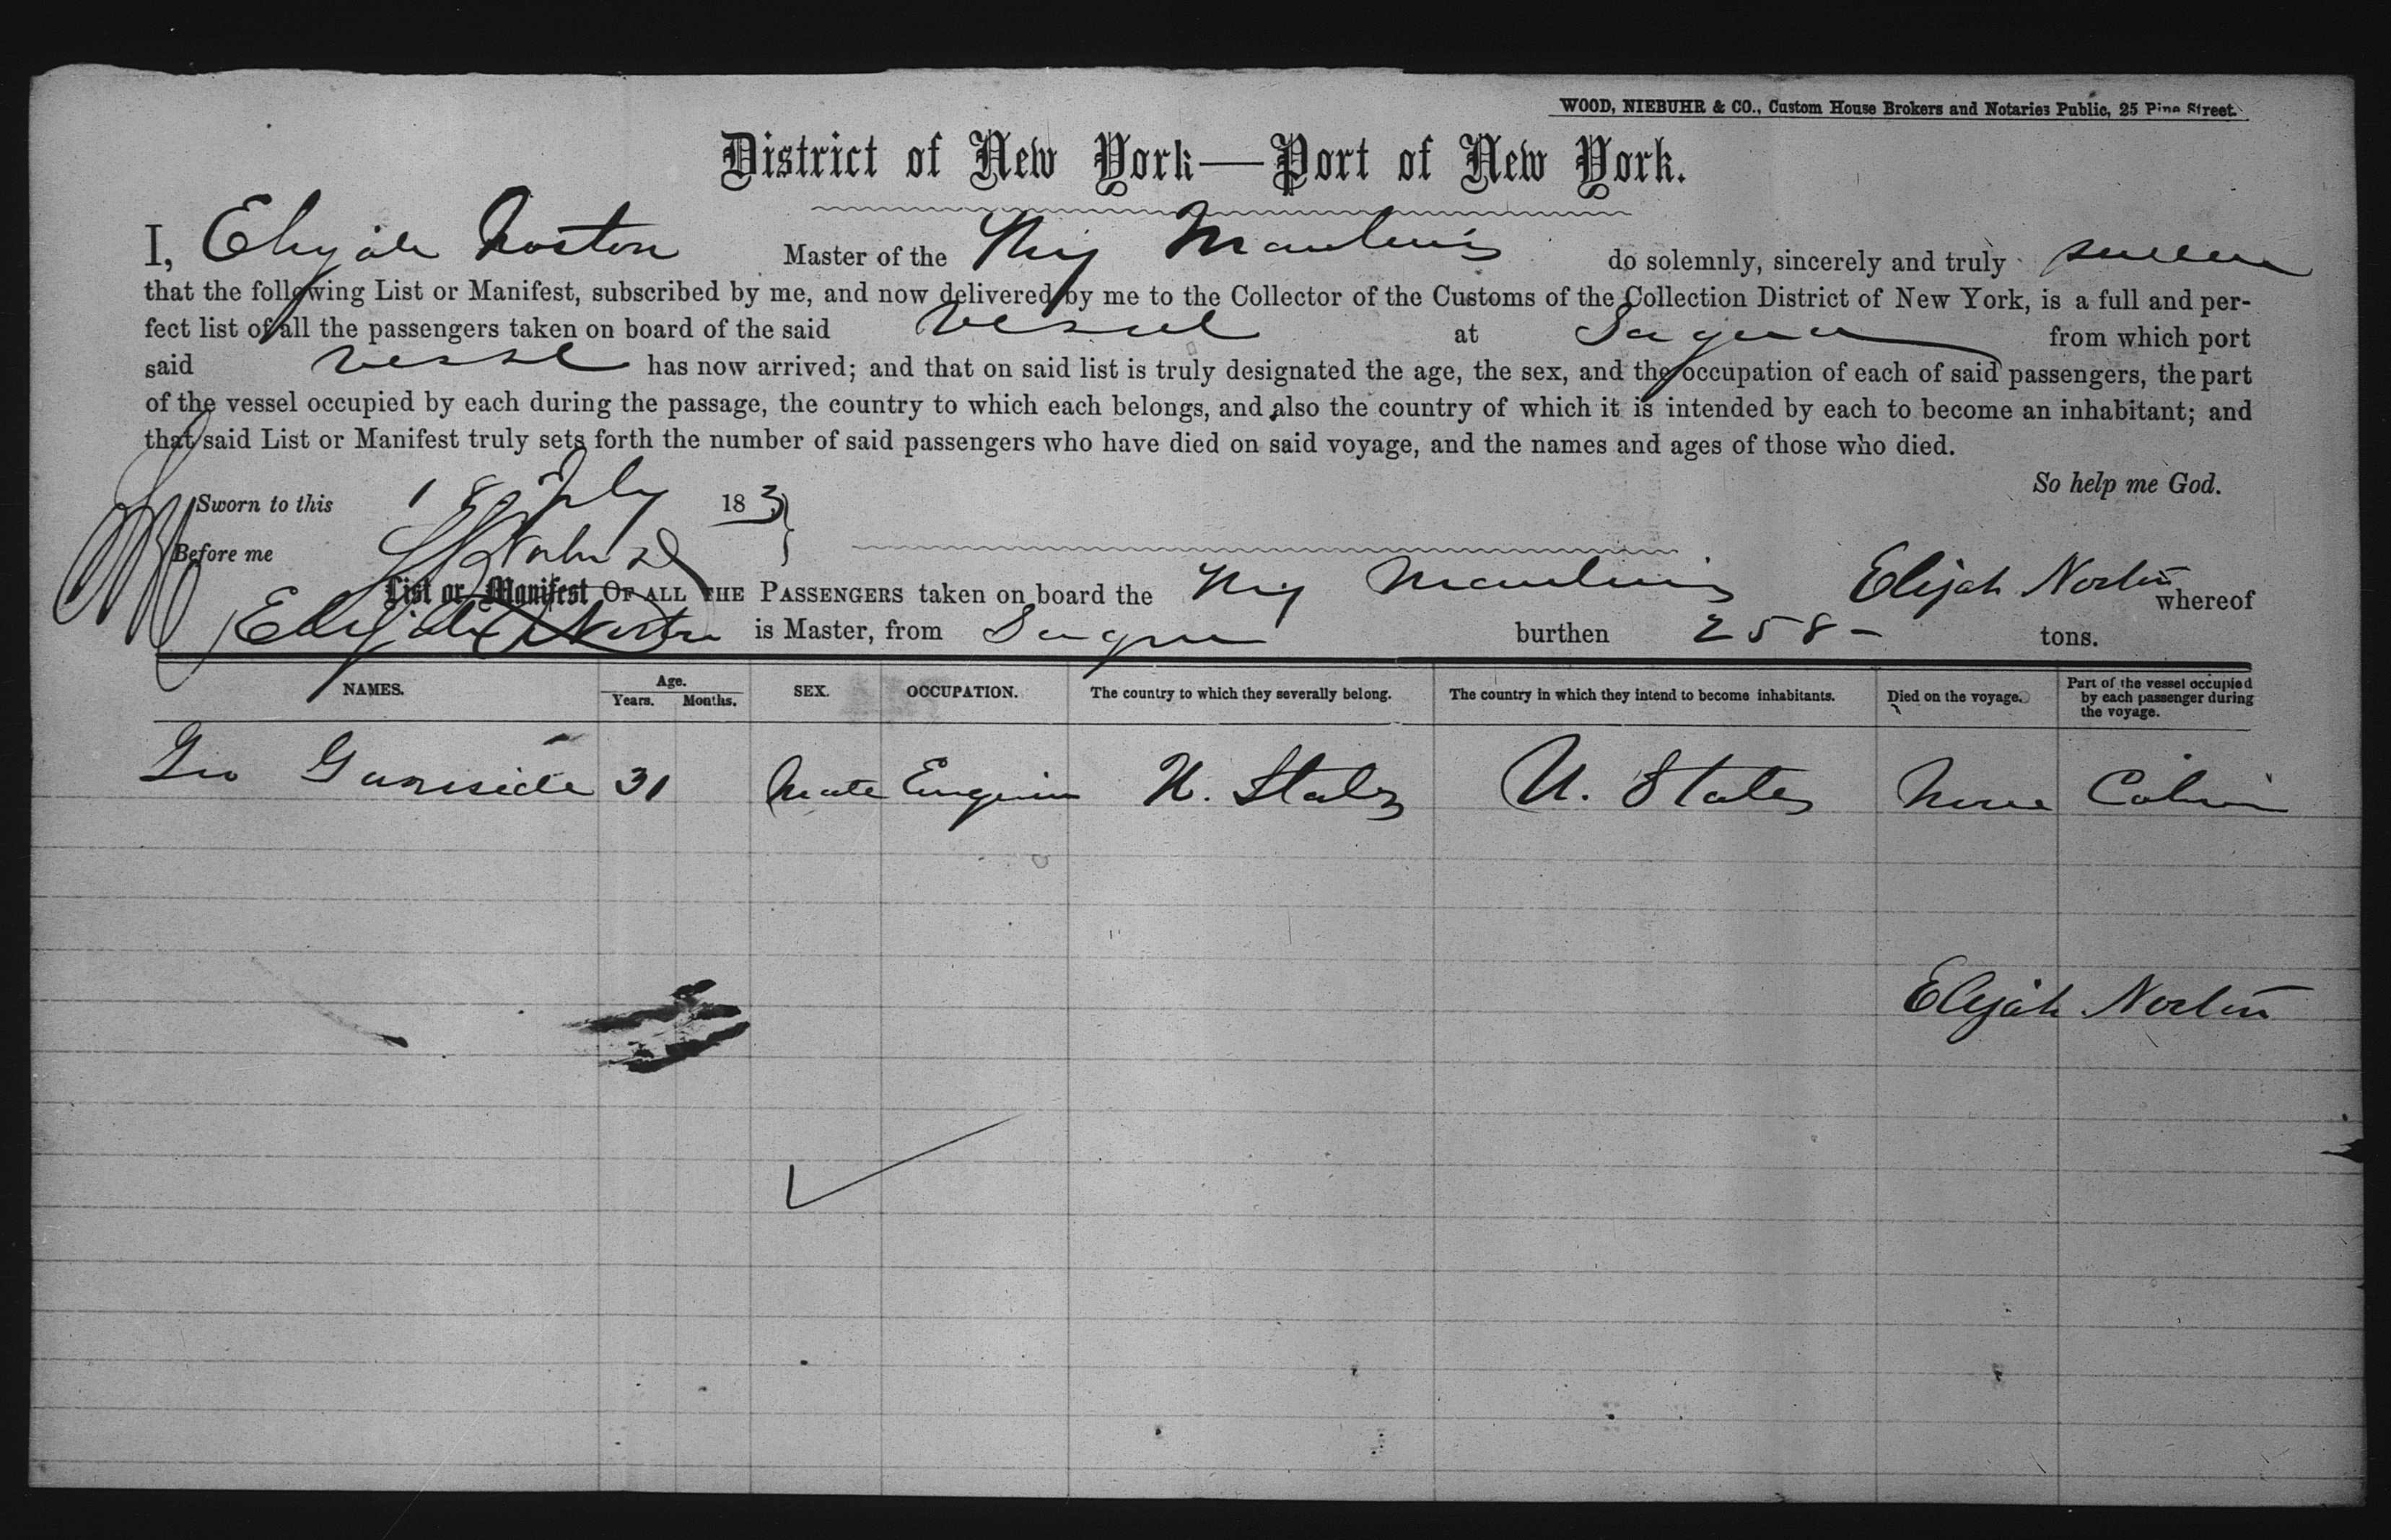 WOOD, NIEBUHR & CO., Custom House Brokers and Notaries Public, 25 Pine Street.
District of New York—Port of New York.
I, Elijah Norton Master of the do solemnly, sincerely and truly swear
that the following List or Manifest, subscribed by me, and now delivered by me to the Collector of the Customs of the Collection District of New York, is a full and per-
fect list of all the passengers taken on board of the said Vessel at Sagua from which port
said vessel has now arrived; and that on said list is truly designated the age, the sex, and the occupation of each of said passengers, the part
of the vessel occupied by each during the passage, the country to which each belongs, and also the country of which it is intended by each to become an inhabitant; and
that said List or Manifest truly sets forth the number of said passengers who have died on said voyage, and the names and ages of those who died.
So help me God.
Sworn to this 18 July 183
Before me
List or Manifest OF ALL THE PASSENGERS taken on board the Elijah Norton whereof
Elijah Norton is Master, from Sagua burthen 258 - tons.
NAMES. Age. Years. Months. SEX. OCCUPATION. The country to which they severally belong. The country in which they intend to become inhabitants. Died on the voyage. Part of the vessel occupied by each passenger during the voyage.
Geo 31 Male Engineer U. States U. States None Cabin
Elijah Norton